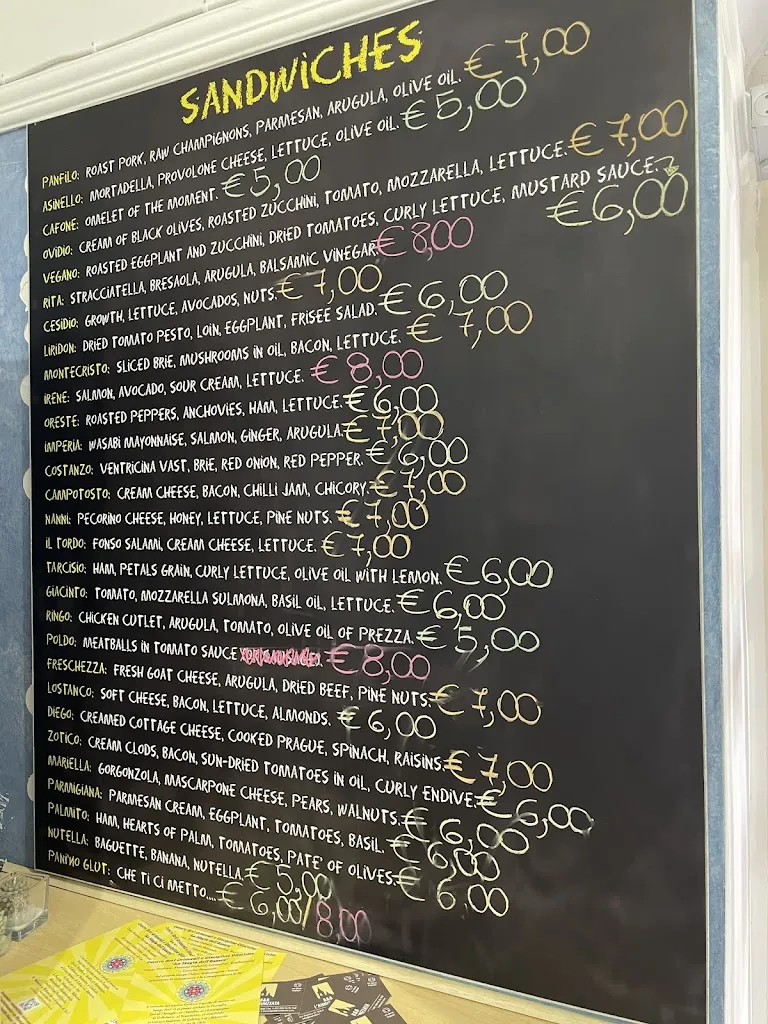 SANDWICHES
PANFILO: ROAST PORK, RAW CHAMPIGNONS, PARMESAN, ARUGULA, OLIVE OIL. € 7,00
ASINELLO: MORTADELLA, PROVOLONE CHEESE, LETTUCE, OLIVE OIL. € 5,00
CAFONE: OMELET OF THE MOMENT. € 5,00
OVIDIO: CREAM OF BLACK OLIVES, ROASTED ZUCCHINI, TOMATO, MOZZARELLA, LETTUCE. € 7,00
VEGANO: ROASTED EGGPLANT AND ZUCCHINI, DRIED TOMATOES, CURLY LETTUCE, MUSTARD SAUCE. € 6,00
RITA: STRACCIATELLA, BRESAOLA, ARUGULA, BALSAMIC VINEGAR. € 8,00
CESIDIO: GROWTH, LETTUCE, AVOCADOS, NUTS. € 7,00
LIRIDON: DRIED TOMATO PESTO, LOIN, EGGPLANT, FRISEE SALAD. € 6,00
MONTECRISTO: SLICED BRIE, MUSHROOMS IN OIL, BACON, LETTUCE. € 7,00
IRENE: SALMON, AVOCADO, SOUR CREAM, LETTUCE. € 8.00
ORESTE: ROASTED PEPPERS, ANCHOVIES, HAM, LETTUCE. € 6,00
IMPERIA: WASABI MAYONNAISE, SALMON, GINGER, ARUGULA. € 7,00
COSTANZO: VENTRICINA VAST, BRIE, RED ONION, RED PEPPER. € 6,00
CAMPOTOSTO: CREAM CHEESE, BACON, CHILLI JAM, CHICORY. € 7,00
NANNI: PECORINO CHEESE, HONEY, LETTUCE, PINE NUTS. € 7,00
IL TORDO: FONSO SALAMI, CREAM CHEESE, LETTUCE. € 7,00
TARCISIO: HAM, PETALS GRAIN, CURLY LETTUCE, OLIVE OIL WITH LEMON. € 6,00
GIACINTO: TOMATO, MOZZARELLA SULMONA, BASIL OIL, LETTUCE. € 6,00
RINGO: CHICKEN CUTLET, ARUGULA, TOMATO, OLIVE OIL OF PREZZA. € 5,00
POLDO: MEATBALLS IN TOMATO SAUCE € 8,00
FRESCHEZZA: FRESH GOAT CHEESE, ARUGULA, DRIED BEEF, PINE NUTS. € 7,00
LOSTANCO: SOFT CHEESE, BACON, LETTUCE, ALMONDS. € 6,00
DIEGO: CREAMED COTTAGE CHEESE, COOKED PRAGUE, SPINACH, RAISINS. € 7,00
ZOTICO: CREAM CLODS, BACON, SUN-DRIED TOMATOES IN OIL, CURLY ENDIVE. € 6,00
MARIELLA: GORGONZOLA, MASCARPONE CHEESE, PEARS, WALNUTS. € 6,00
PARMIGIANA: PARMESAN CREAM, EGGPLANT, TOMATOES, BASIL. € 6,00
PALMITO: HAM, HEARTS OF PALM, TOMATOES, PATE' OF OLIVES. € 6.00
NUTELLA: BAGUETTE, BANANA, NUTELLA. € 5,00
PANINO GLUT: CHE TI CI METTO.... € 6,00/8,00